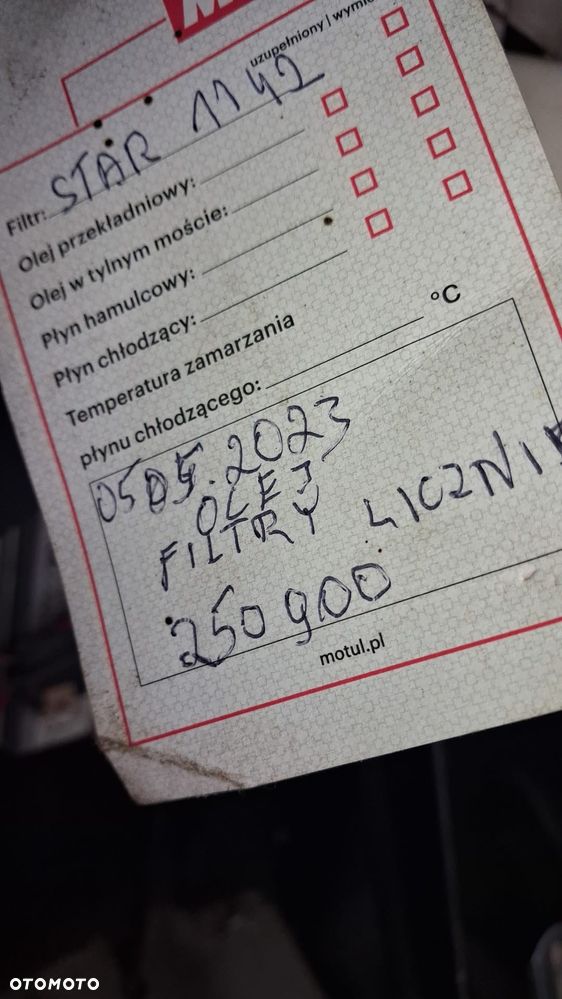 uzupełniony | wymie
Filtr: STAR 1142
Olej przekładniowy:
Olej w tylnym moście:
Płyn hamulcowy:
Płyn chłodzący:
Temperatura zamarzania
płynu chłodzącego: °C
05 05.2023
OLEJ
FILTRY LICZNIK
250 900
motul.pl
OTOMOTO